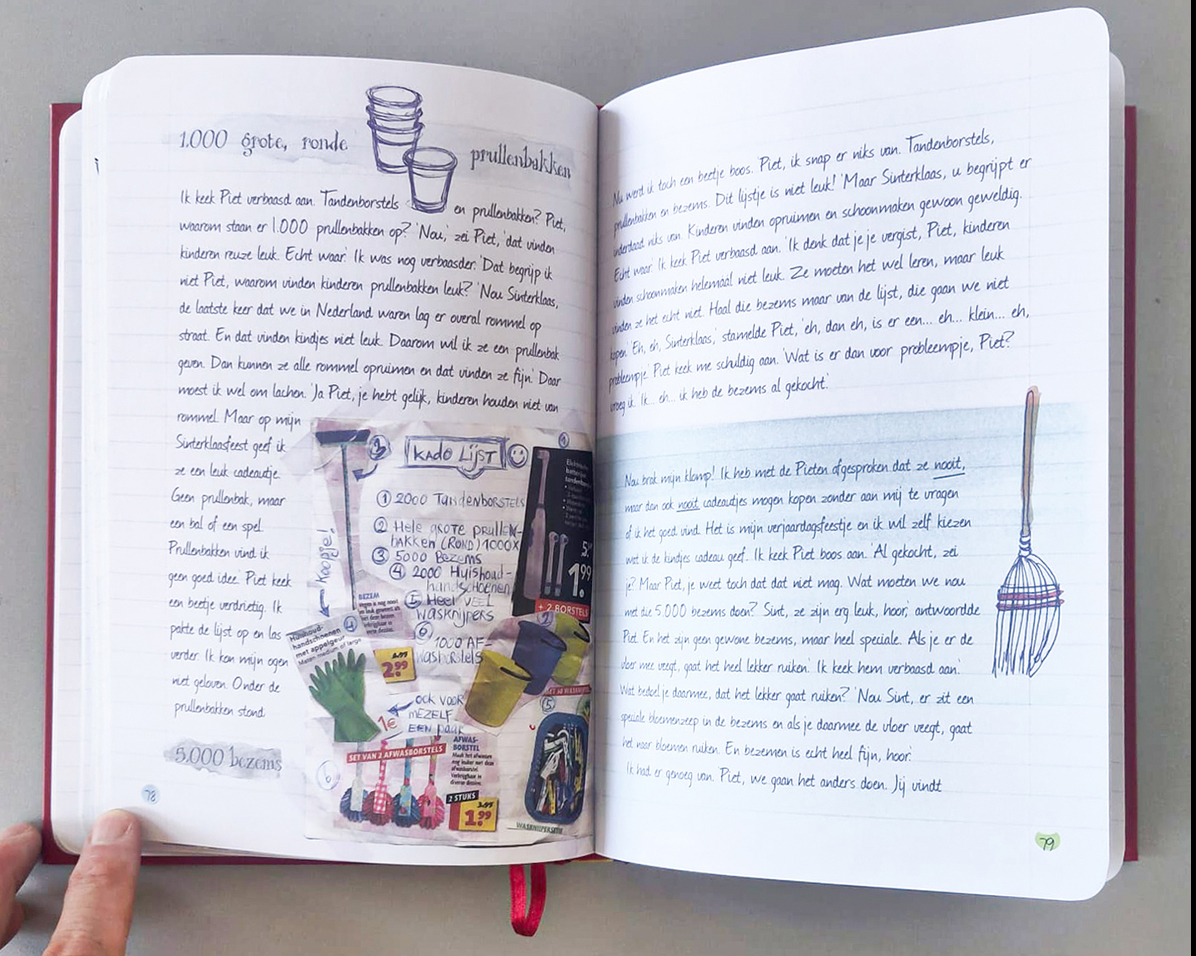 1.000 grote, ronde
prullenbakken
Ik keek Piet verbaasd aan. Tandenborstels en prullenbakken? Piet,
waarom staan er 1.000 prullenbakken op? 'Nou,' zei Piet, 'dat vinden
kinderen reuze leuk. Echt waar.' Ik was nog verbaasder. 'Dat begrijp ik
niet Piet, waarom vinden kinderen prullenbakken leuk?' 'Nou Sinterklaas,
de laatste keer dat we in Nederland waren lag er overal rommel op
straat. En dat vinden kindjes niet leuk. Daarom wil ik ze een prullenbak
geven. Dan kunnen ze alle rommel opruimen en dat vinden ze fijn.' Daar
moest ik wel om lachen. 'Ja Piet, je hebt gelijk, kinderen houden niet van
rommel. Maar op mijn
Sinterklaasfeest geef ik
ze een leuk cadeautje.
Geen prullenbak, maar
een bal of een spel.
Prullenbakken vind ik
geen goed idee.' Piet keek
een beetje verdrietig. Ik
pakte de lijst op en las
verder. Ik kon mijn ogen
niet geloven. Onder de
prullenbakken stond:
5.000 bezems
78
KADO LIJST
① 2000 Tandenborstels
② Hele grote prullen-
bakken (ROND) 1000X
③ 5000 Bezems
④ 2000 Huishoud-
handschoenen
⑤ Heel veel
wasknijpers
⑥ 1000 AF-
wasborstels
Koopje!
③
①
1.99
+ 2 BORSTELS
BEZEM
④
Huishoud-
handschoenen
met appelgeur
Maten medium of large
2.99
1€
OOK VOOR
MEZELF
EEN PAAR
②
⑤
⑥
SET VAN 2 AFWASBORSTELS
AFWAS-
BORSTEL
2 STUKS
1.99
Nu werd ik toch een beetje boos. Piet, ik snap er niks van. Tandenborstels,
prullenbakken en bezems. Dit lijstje is niet leuk! 'Maar Sinterklaas, u begrijpt er
inderdaad niks van. Kinderen vinden opruimen en schoonmaken gewoon geweldig.
Echt waar.' Ik keek Piet verbaasd aan. 'Ik denk dat je je vergist, Piet, kinderen
vinden schoonmaken helemaál niet leuk. Ze moeten het wel leren, maar leuk
vinden ze het echt niet. Haal die bezems maar van de lijst, die gaan we niet
kopen.' 'Eh, eh, Sinterklaas,' stamelde Piet, 'eh, dan eh, is er een... eh... klein... eh,
probleempje.' Piet keek me schuldig aan. 'Wat is er dan voor probleempje, Piet?'
vroeg ik. 'Ik... eh... ik heb de bezems al gekocht.'
Nou brak mijn klomp! Ik heb met de Pieten afgesproken dat ze nooit,
maar dan ook nooit cadeautjes mogen kopen zonder aan mij te vragen
of ik het goed vind. Het is mijn verjaardagsfeestje en ik wil zelf kiezen
wat ik de kindjes cadeau geef. Ik keek Piet boos aan. 'Al gekocht, zei
je? Maar Piet, je weet toch dat dat niet mag. Wat moeten we nou
met die 5.000 bezems doen?' 'Sint, ze zijn erg leuk, hoor,' antwoordde
Piet. 'En het zijn geen gewone bezems, maar heel speciale. Als je er de
vloer mee veegt, gaat het heel lekker ruiken.' Ik keek hem verbaasd aan.
'Wat bedoel je daarmee, dat het lekker gaat ruiken?' 'Nou Sint, er zit een
speciale bloemenzeep in de bezems en als je daarmee de vloer veegt, gaat
het naar bloemen ruiken. En bezemen is echt heel fijn, hoor.'
Ik had er genoeg van. 'Piet, we gaan het anders doen. Jij vindt
79